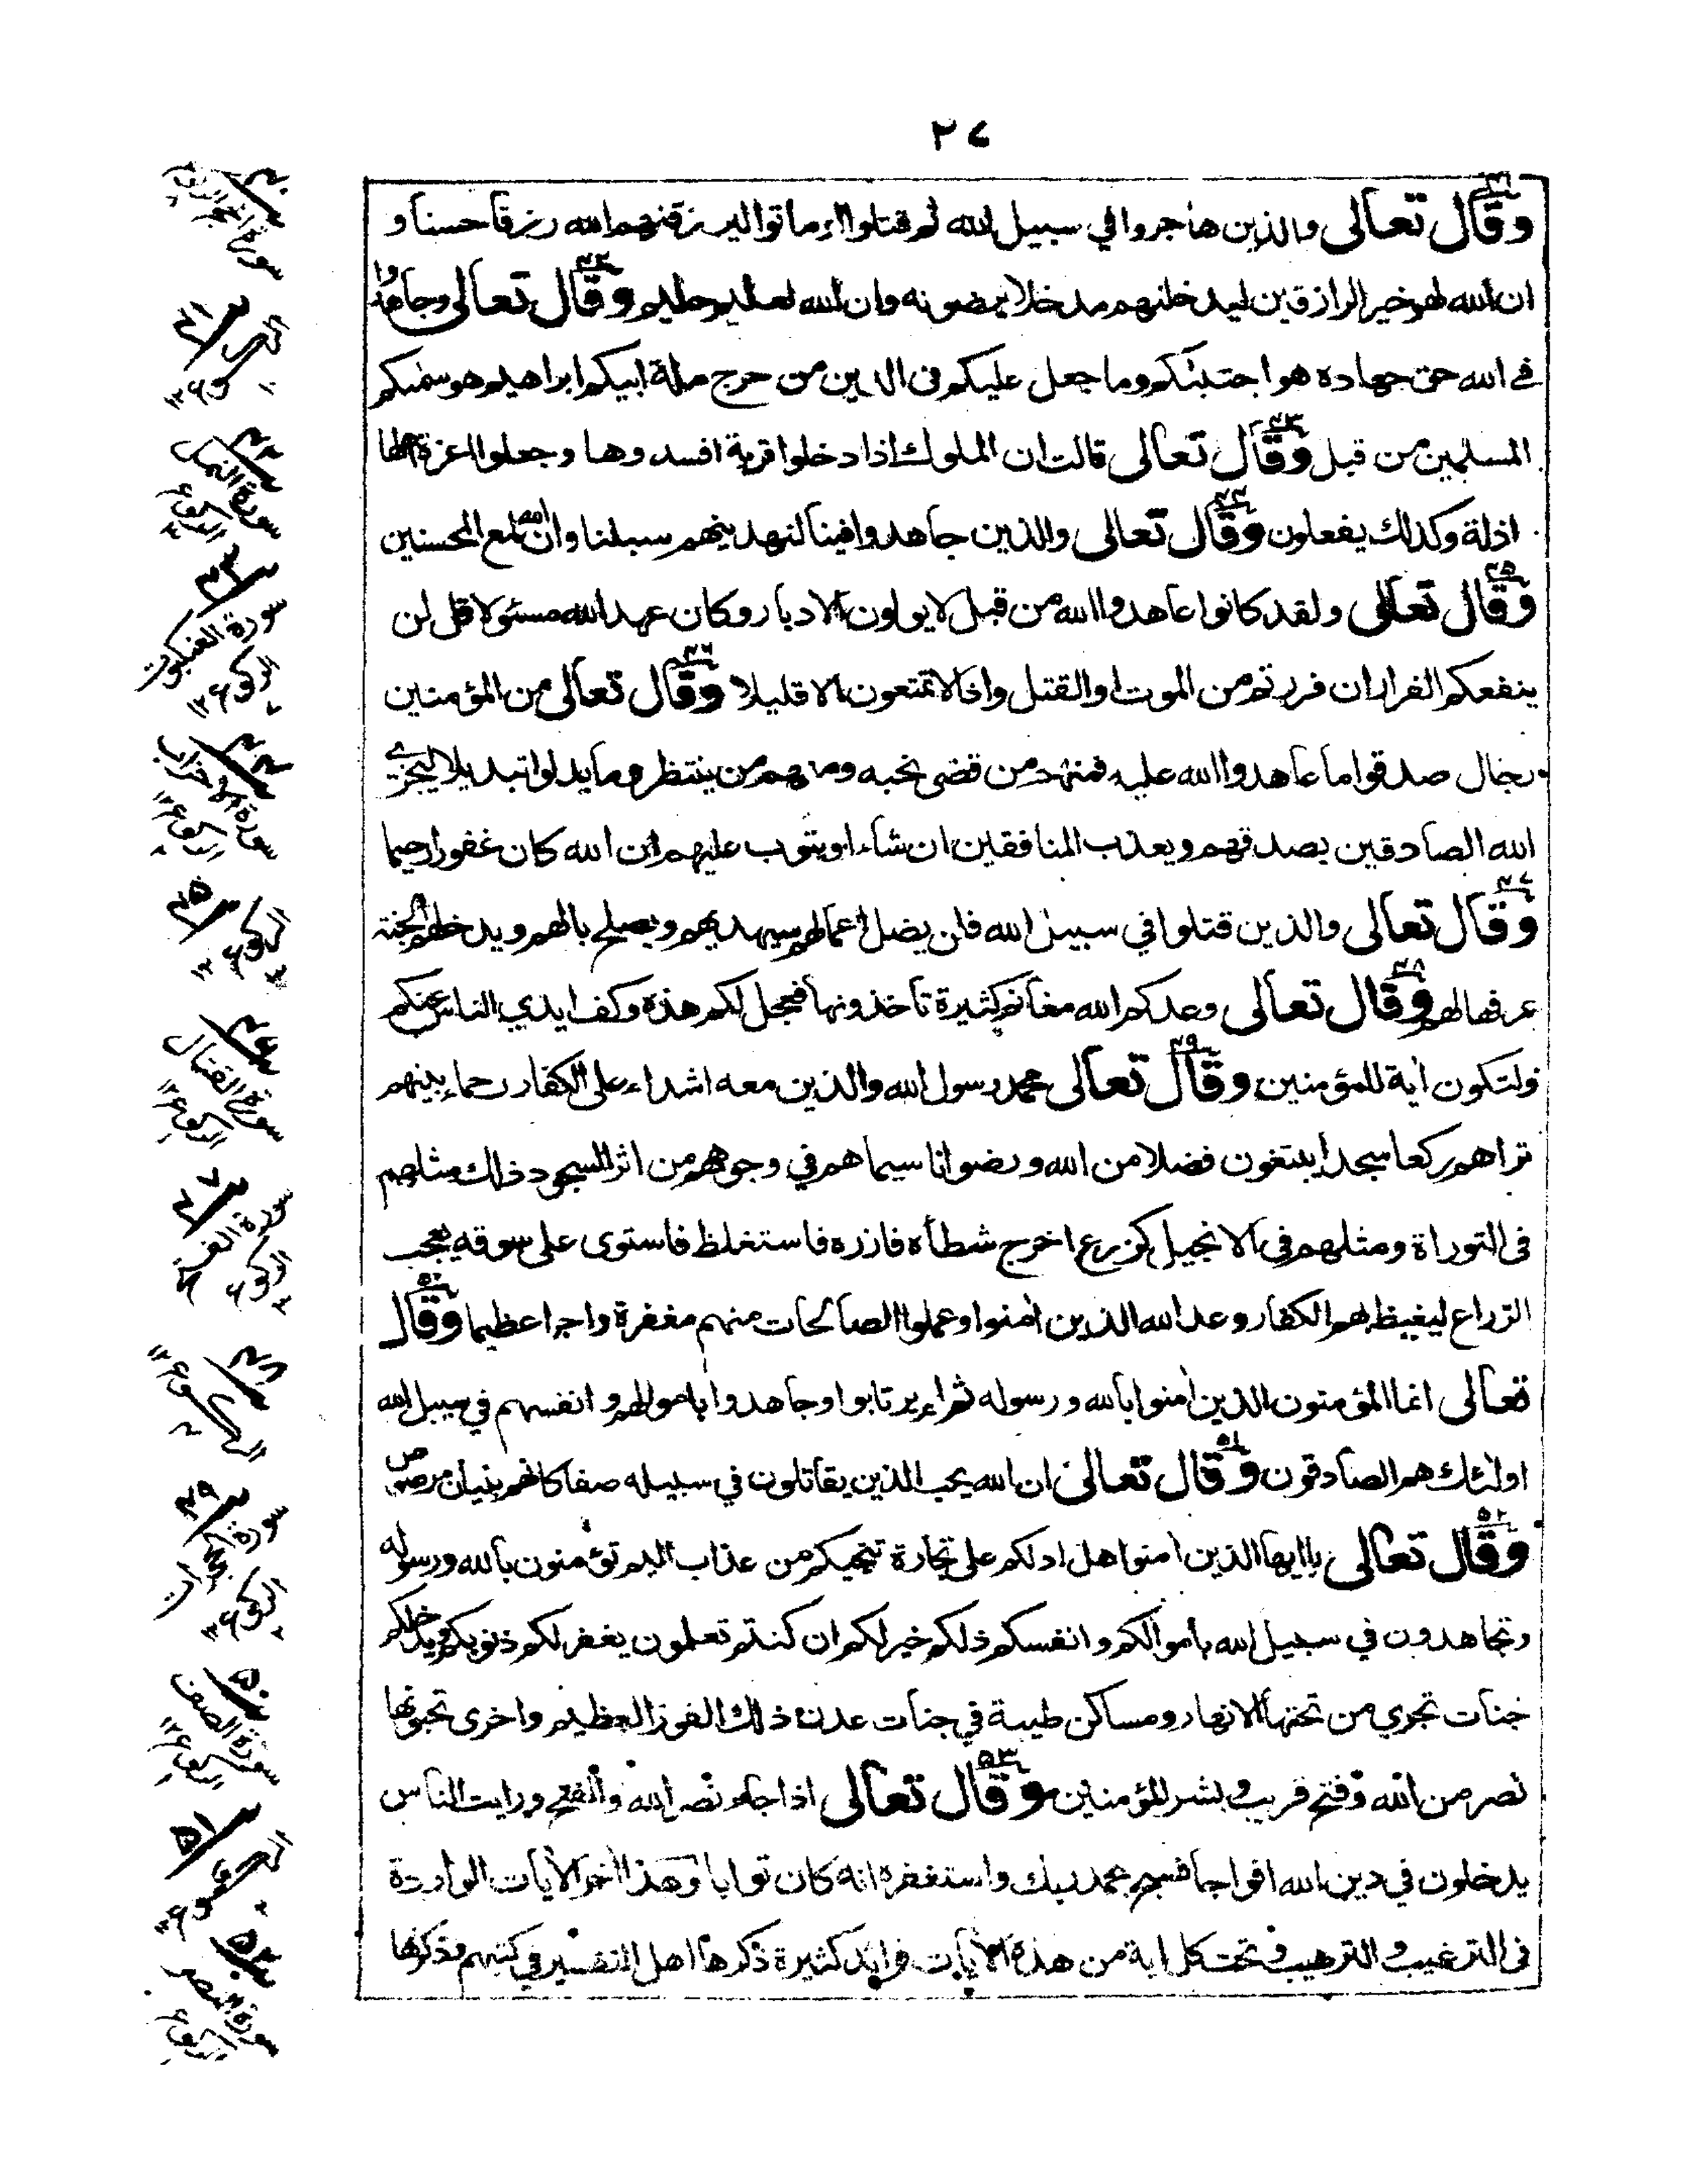 ٢٧
وقال تعالى والذين هاجروا في سبيل الله ثم قتلوا او ماتوا ليرزقنهم الله رزقا حسنا و
ان الله لهو خير الرازقين ليدخلنهم مدخلا يرضونه وان الله لعليم حليم وقال تعالى وجاهدوا
في الله حق جهاده هو اجتبٰكم وما جعل عليكم في الدين من حرج ملة ابيكم ابراهيم هو سمٰىكم
المسلمين من قبل وقال تعالى قالت ان الملوك اذا دخلوا قرية افسدوها وجعلوا اعزة اهلها
اذلة وكذلك يفعلون وقال تعالى والذين جاهدوا فينا لنهدينهم سبلنا وان الله لمع المحسنين
وقال تعالى ولقد كانوا عاهدوا الله من قبل لا يولون الادبار وكان عهد الله مسئولا قل لن
ينفعكم الفرار ان فررتم من الموت او القتل واذا لا تمتعون الا قليلا وقال تعالى من المؤمنين
رجال صدقوا ما عاهدوا الله عليه فمنهم من قضى نحبه ومنهم من ينتظر وما بدلوا تبديلا ليجزي
الله الصادقين بصدقهم ويعذب المنافقين ان شاء او يتوب عليهم ان الله كان غفورا رحيما
وقال تعالى والذين قتلوا في سبيل الله فلن يضل اعمالهم سيهديهم ويصلح بالهم ويدخلهم الجنة
عرفها لهم وقال تعالى وعدكم الله مغانم كثيرة تاخذونها فعجل لكم هذه وكف ايدي الناس عنكم
ولتكون اية للمؤمنين وقال تعالى محمد رسول الله والذين معه اشداء على الكفار رحماء بينهم
تراهم ركعا سجدا يبتغون فضلا من الله ورضوانا سيماهم في وجوههم من اثر السجود ذلك مثلهم
في التوراة ومثلهم في الانجيل كزرع اخرج شطأه فازره فاستغلظ فاستوى على سوقه يعجب
الزراع ليغيظ بهم الكفار وعد الله الذين امنوا وعملوا الصالحات منهم مغفرة واجرا عظيما وقال
تعالى انما المؤمنون الذين امنوا بالله ورسوله ثم لم يرتابوا وجاهدوا باموالهم وانفسهم في سبيل الله
اولئك هم الصادقون وقال تعالى ان الله يحب الذين يقاتلون في سبيله صفا كانهم بنيان مرصوص
وقال تعالى يا ايها الذين امنوا هل ادلكم على تجارة تنجيكم من عذاب اليم تؤمنون بالله ورسوله
وتجاهدون في سبيل الله باموالكم وانفسكم ذلكم خير لكم ان كنتم تعلمون يغفر لكم ذنوبكم ويدخلكم
جنات تجري من تحتها الانهار ومساكن طيبة في جنات عدن ذلك الفوز العظيم واخرى تحبونها
نصر من الله وفتح قريب وبشر المؤمنين وقال تعالى اذا جاء نصر الله والفتح ورايت الناس
يدخلون في دين الله افواجا فسبح بحمد ربك واستغفره انه كان توابا وهذا اخر الأيات الواردة
في الترغيب والترهيب وتحت كل اية من هذه الأيات فوائد كثيرة ذكرها اهل التفسير في كتبهم وذكرها
سورة النمل
سورة العنكبوت
سورة الاحزاب
سورة القتال
سورة الفتح
سورة الحجرات
سورة الصف
سورة النصر